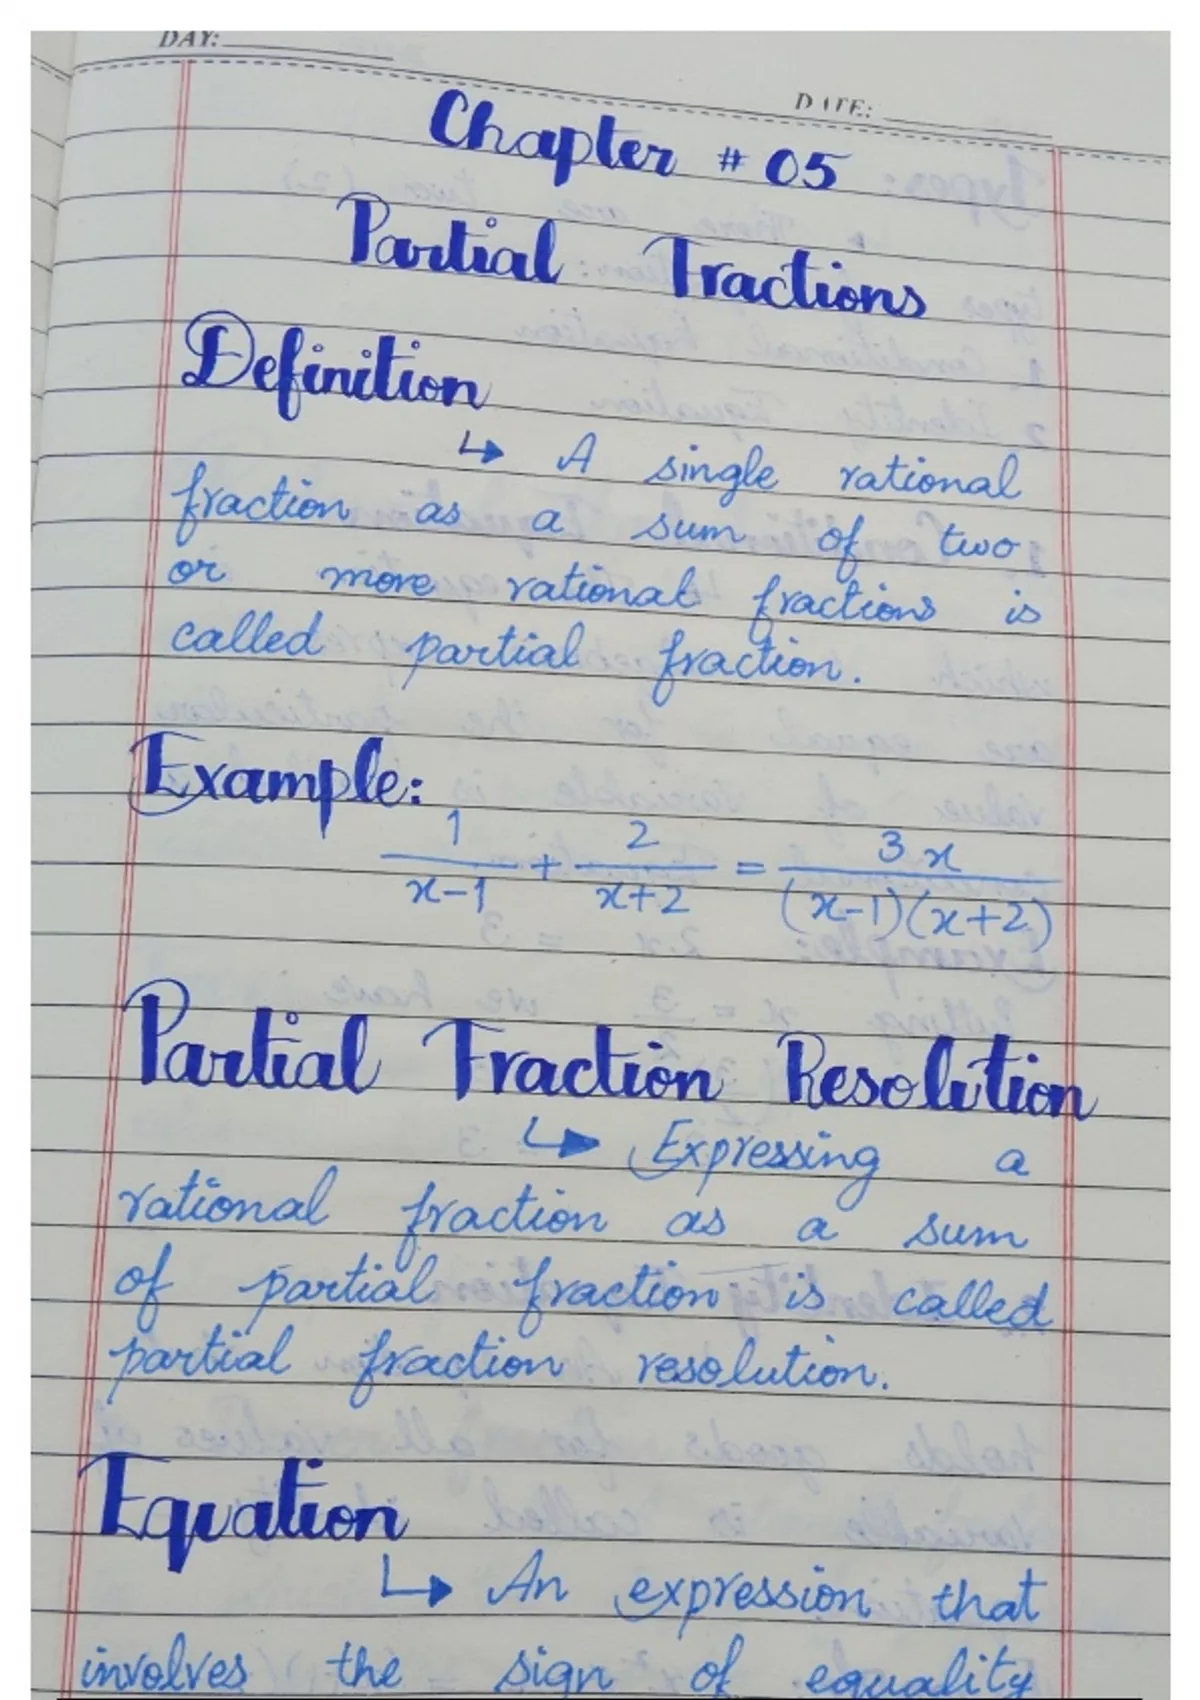 DAY:
DATE:
Chapter # 05
Partial Fractions
Definition
↳ A single rational
fraction as a sum of two
or more rational fractions is
called partial fraction.
Example:
1/(x-1) + 2/(x+2) = 3x/((x-1)(x+2))
Partial Fraction Resolution
↳ Expressing a
rational fraction as a sum
of partial fraction is called
partial fraction resolution.
Equation
↳ An expression that
involves the sign of equality